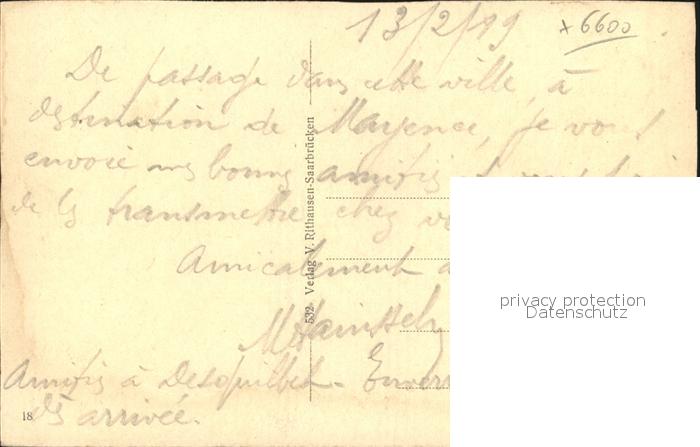 13/2/19
x 6600
De passage dans cette ville, à
destination de Mayence, je vous
envoie mes bonnes amitiés et
de les transmettre chez
Amicalement
Amitiés à
dès arrivée.
532 Verlag V. Rithausen-Saarbrücken
18
privacy protection
Datenschutz